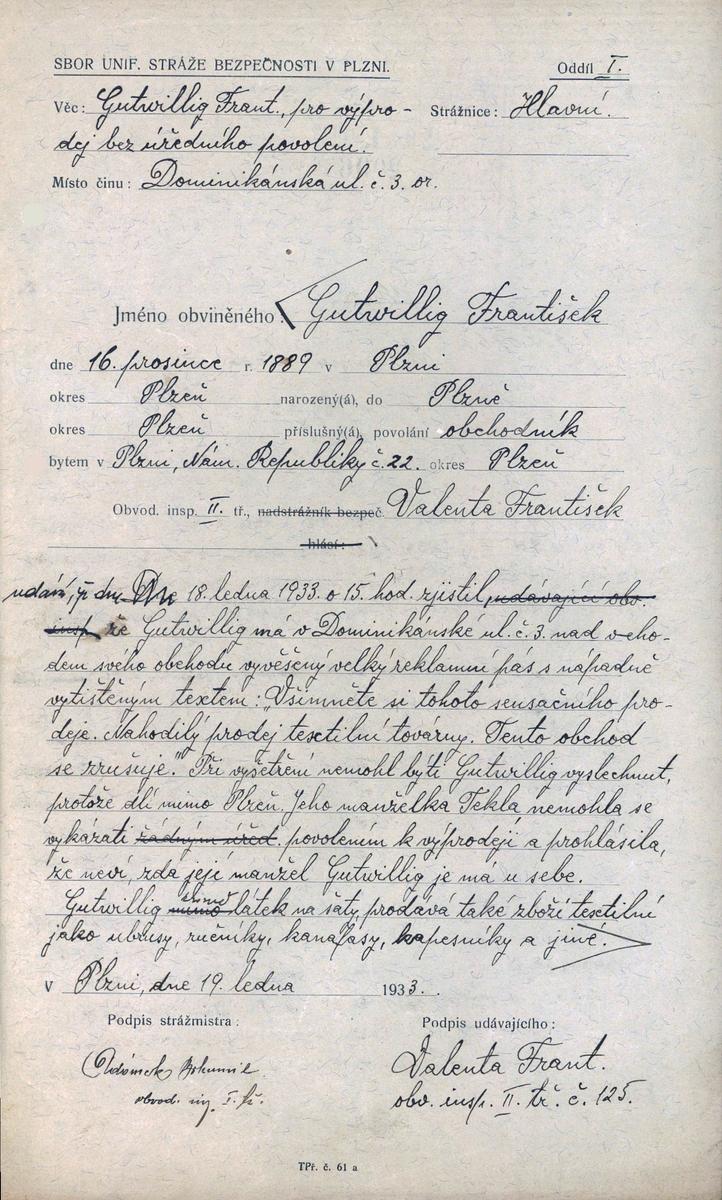 SBOR UNIF. STRÁŽE BEZPEČNOSTI V PLZNI. Oddíl I.
Věc: Gutwillig Frant., pro výpro- Strážnice: Hlavní.
dej bez úředního povolení.
Místo činu: Dominikánská ul. č. 3. or.
Jméno obviněného: Gutwillig František
dne 16. prosince r. 1889 v Plzni
okres Plzeň narozený(á), do Plzně
okres Plzeň příslušný(á), povolání obchodník
bytem v Plzni, Nám. Republiky č. 22. okres Plzeň
Obvod. insp. II. tř., nadstrážník bezpeč. Valenta František
hlásí:
udává, že dne Dne 18. ledna 1933 o 15. hod. zjistil, udávající obv.
insp. že Gutwillig má v Dominikánské ul. č. 3. nad vcho-
dem svého obchodu vyvěšený velký reklamní pás s nápadně
vytištěným textem: „Všimněte si tohoto sensačního pro-
deje. Nahodilý prodej textilní továrny. Tento obchod
se zrušuje." Při vyšetření nemohl býti Gutwillig vyslechnut,
protože dlí mimo Plzeň. Jeho manželka Tekla, nemohla se
vykázati žádným úřed. povolením k výprodeji a prohlásila,
že neví, zda její manžel Gutwillig je má u sebe.
Gutwillig mimo látek na šaty, prodává také zboží textilní
jako ubrusy, ručníky, kanafasy, kapesníky a jiné.
v Plzni, dne 19. ledna 1933.
Podpis strážmistra: Podpis udávajícího:
Adámek Bohumil Valenta Frant.
obvod. insp. I. tř. obv. insp. II. tř. č. 125.
TPř. č. 61 a